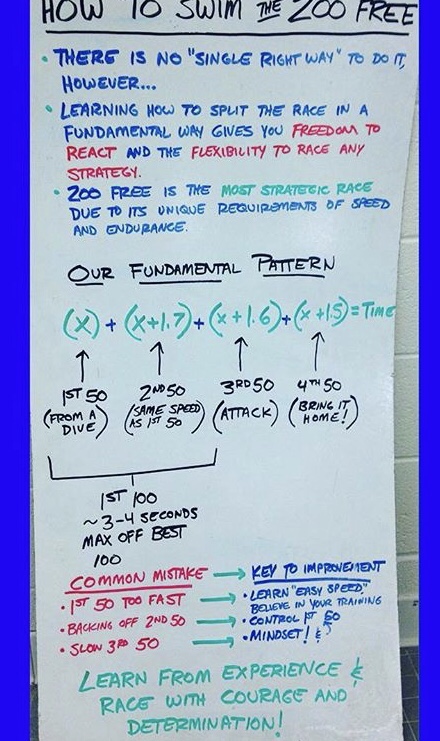 HOW TO SWIM THE 200 FREE
• THERE IS NO "SINGLE RIGHT WAY" TO DO IT,
HOWEVER...
• LEARNING HOW TO SPLIT THE RACE IN A
FUNDAMENTAL WAY GIVES YOU FREEDOM TO
REACT AND THE FLEXIBILITY TO RACE ANY
STRATEGY.
• 200 FREE IS THE MOST STRATEGIC RACE
DUE TO ITS UNIQUE REQUIREMENTS OF SPEED
AND ENDURANCE.
OUR FUNDAMENTAL PATTERN
(X) + (X+1.7) + (X+1.6) + (X+1.5) = TIME
1ST 50
(FROM A
DIVE)
2ND 50
(SAME SPEED
AS 1ST 50)
3RD 50
(ATTACK)
4TH 50
(BRING IT
HOME!)
1ST 100
~3-4 SECONDS
MAX OFF BEST
100
COMMON MISTAKE → KEY TO IMPROVEMENT
• 1ST 50 TOO FAST → • LEARN "EASY SPEED,"
BELIEVE IN YOUR TRAINING
• BACKING OFF 2ND 50 → • CONTROL 1ST 50
• SLOW 3RD 50 → • MINDSET!
LEARN FROM EXPERIENCE &
RACE WITH COURAGE AND
DETERMINATION!